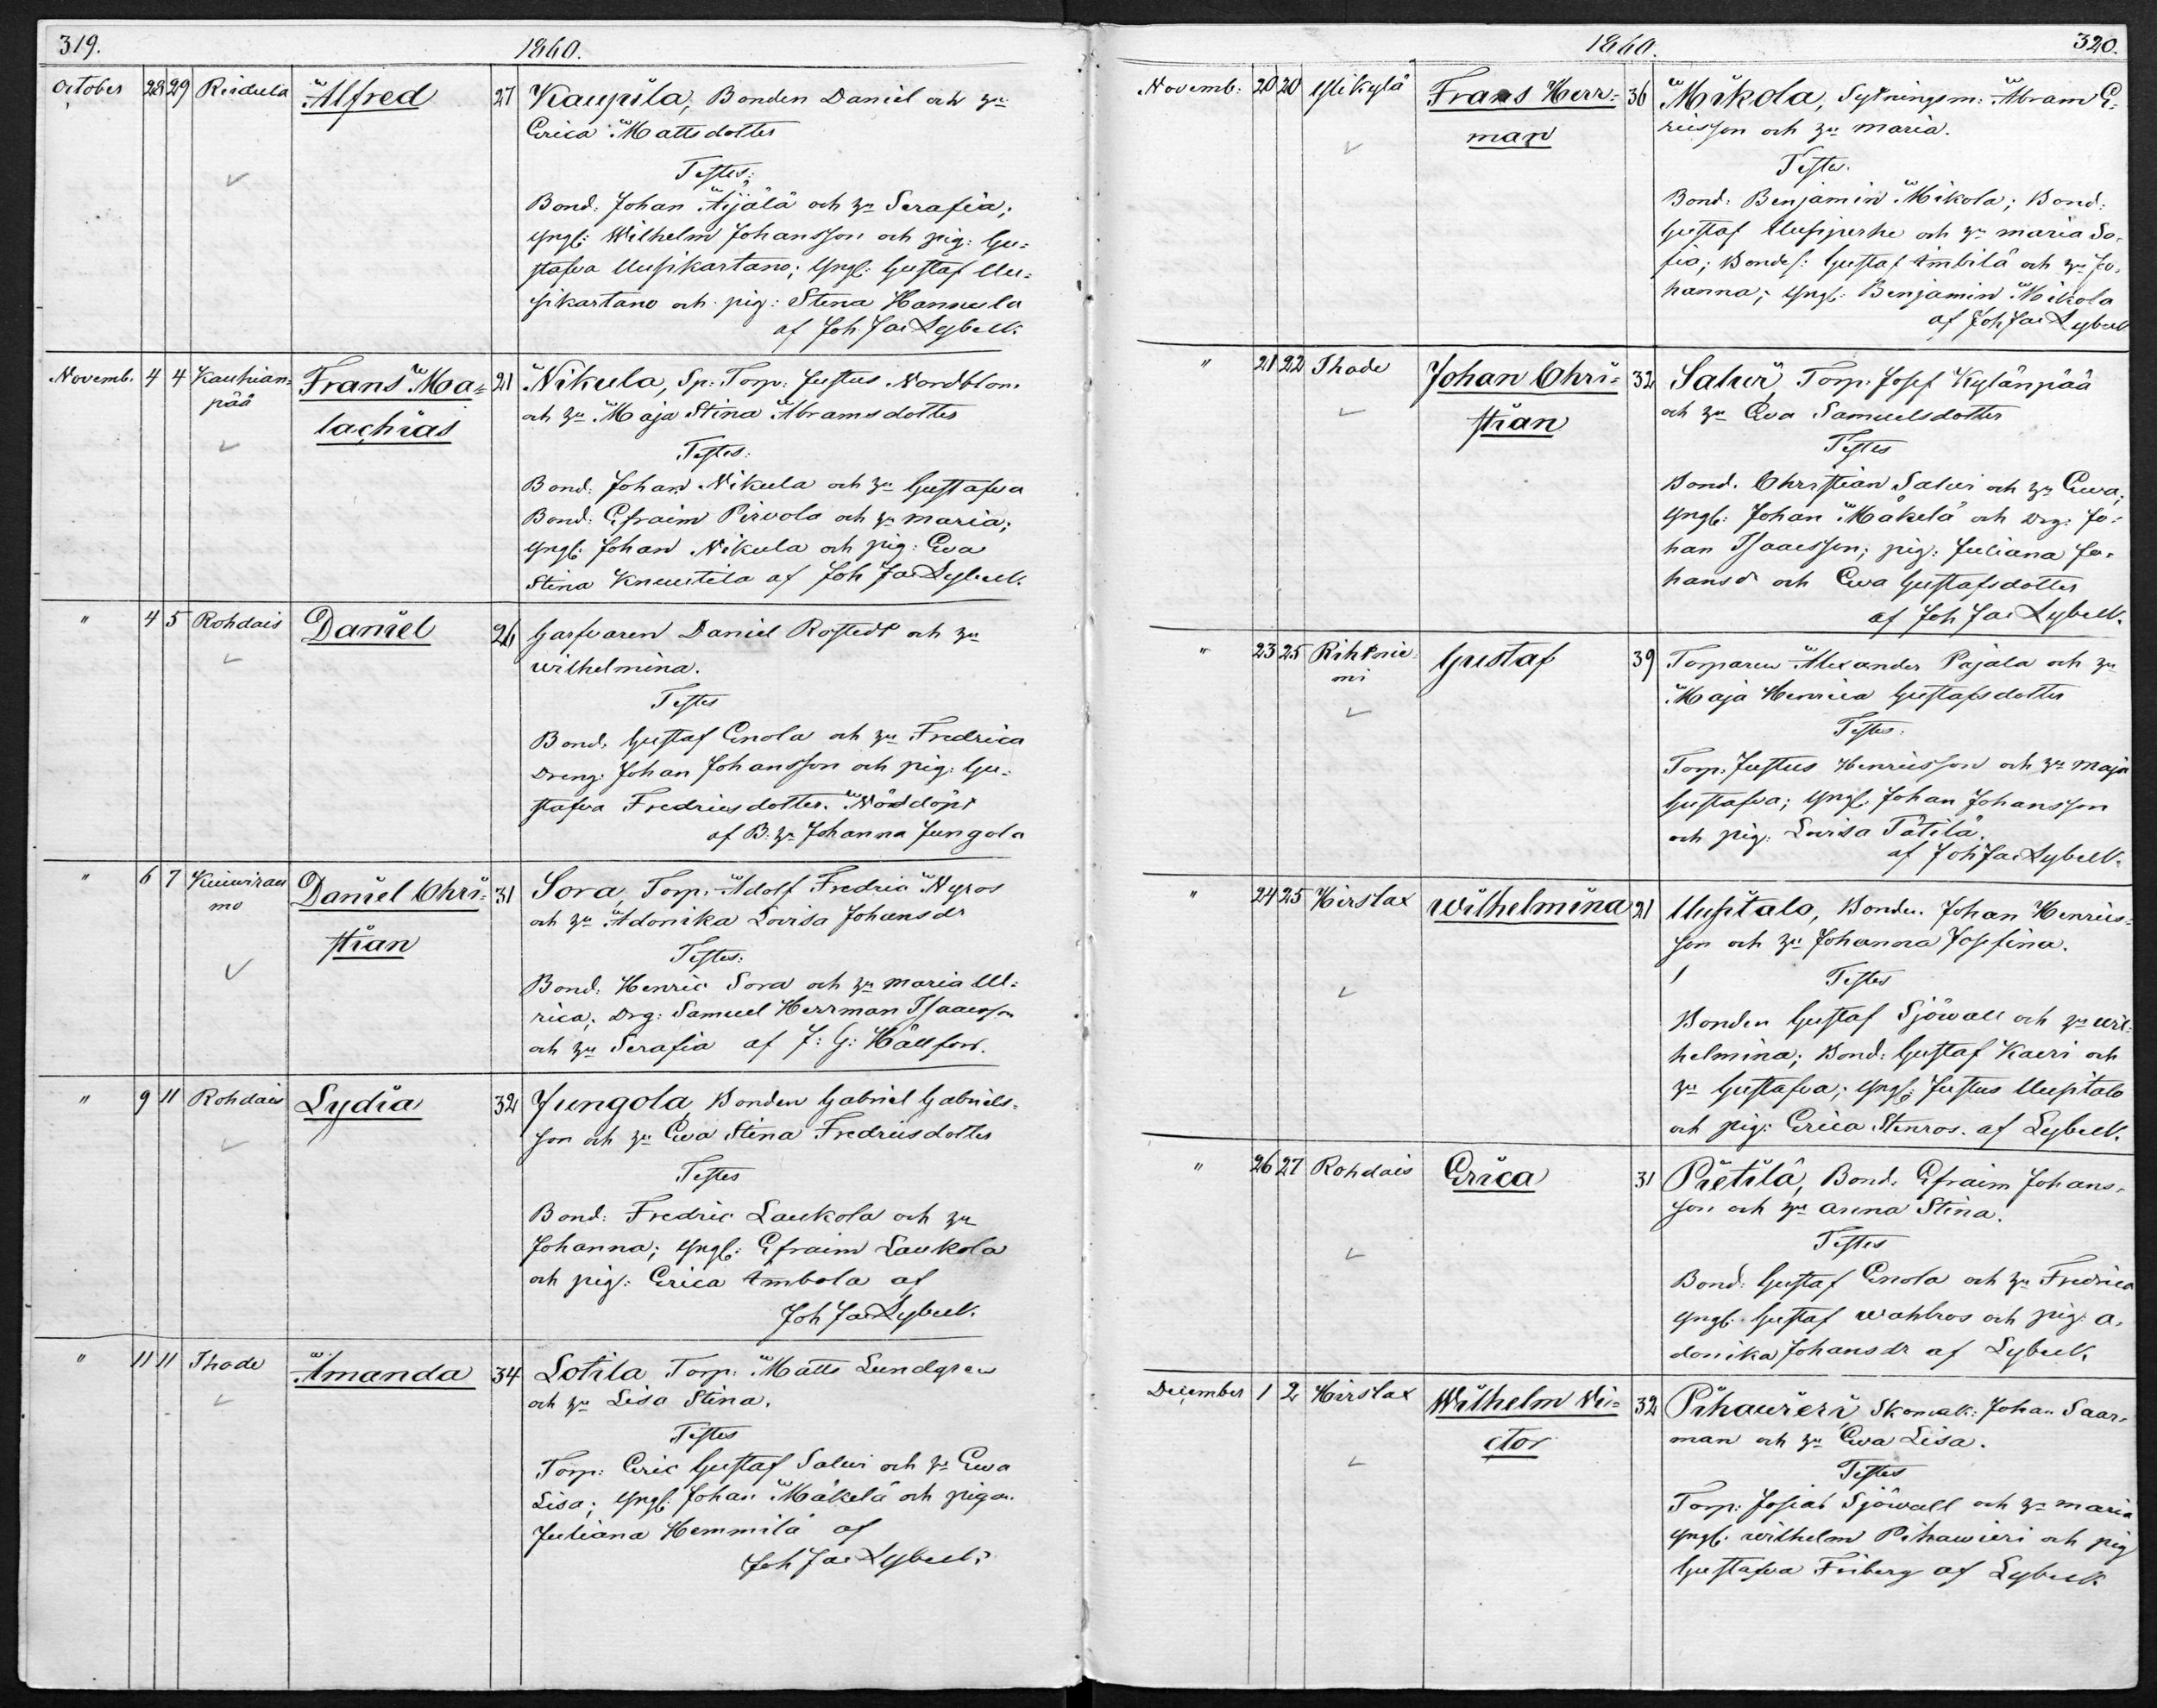 319.
1860.
October 28 29 Riidula Alfred 27 Kaupila, Bonden Daniel och hu
Erica Mattsdotter
Testes:
Bond: Johan Äijälä och hu Serafia;
Yngl: Wilhelm Johansson och pig: Gu=
stafva Uusikartano; Yngl: Gustaf Uu=
sikartano och pig: Stina Hannula
af Joh. Jac Lybeck.
Novemb. 4 4 Kauhian= Frans Ma= 21 Nikula, Sp: Torp: Justus Nordblom
pää lachias och hu Maja Stina Abramsdotter
Testes:
Bond: Johan Nikula och hu Gustafva
Bond: Efraim Pirvola och hu Maria;
Yngl: Johan Nikula och pig: Eva
Stina Knuutila af Joh Jac Lybeck.
" 4 5 Rohdais Daniel 26 Garfvaren Daniel Rostedt och hu
Wilhelmina.
Testes
Bond. Gustaf Enola och hu Fredrica
Dreng: Johan Johansson och pig: Gu=
stafva Fredricsdotter. Nöddöpt
af B: hu Johanna Jungola
" 6 7 Kuiviran Daniel Chri= 31 Sora, Torp: Adolf Fredric Nyros
mo stian och hu Adonika Lovisa Johansdr
Testes:
Bond: Henric Sora och hu Maria Ul=
rica; Drg: Samuel Herrman Isaacsson
och hu Serafia af J: G: Hällfors.
" 9 11 Rohdais Lydia 32 Jungola, Bonden Gabriel Gabriels=
son och hu Eva Stina Fredricsdotter
Testes
Bond: Fredric Laukola och hu
Johanna; Yngl: Efraim Laukola
och pig: Erica Imbola af
Joh Jac Lybeck.
" 11 11 Ihode Amanda 34 Lotila Torp: Matts Lundgren
och hu Lisa Stina.
Testes
Torp: Eric Gustaf Salvi och hu Eva
Lisa; Yngl: Johan Mäkelä och pigan
Juliana Hemmilä af
Joh Jac Lybeck.
1860.
320.
Novemb: 20 20 Ylikylä Frans Herr= 36 Mikola, Sytningsm: Abram E=
man ricsson och hu Maria.
Testes.
Bond: Benjamin Mikola; Bond:
Gustaf Uusiperhe och hu Maria So=
fia; Bondes: Gustaf Imbilä och hu Jo=
hanna; Yngl: Benjamin Mikola
af Joh Jac Lybeck
" 21 22 Ihode Johan Chri= 32 Salvi, Torp. Josef Kylänpää
stian och hu Eva Samuelsdotter
Testes
Bond. Christian Salvi och hu Eva;
Yngl: Johan Mäkelä och Drg: Jo=
han Isaacsson; pig: Juliana Jo=
hansdr och Eva Gustafsdotter
af Joh Jac Lybeck.
" 23 25 Rihtnie= Gustaf 39 Torparen Alexander Pajala och hu
mi Maja Henrica Gustafsdotter
Testes.
Torp. Justus Henricsson och hu Maja
Gustafva; Yngl. Johan Johansson
och pig. Lovisa Tätilä.
af Joh Jac Lybeck.
" 24 25 Hirslax Wilhelmina 21 Uusitalo, Bonden Johan Henrics=
son och hu Johanna Josefina.
Testes
Bonden Gustaf Sjöwall och hu Wil=
helmina; Bond: Gustaf Kaeri och
hu Gustafva; Yngl: Justus Uusitalo
och pig: Erica Stenros. af Lybeck.
" 26 27 Rohdais Erica 31 Pietilä, Bond. Efraim Johans=
son och hu Anna Stina.
Testes
Bond: Gustaf Enola och hu Fredrica
Yngl. Gustaf Wahlros och pig: A=
donika Johansdr af Lybeck.
December 1 2 Hirslax Wilhelm Vi= 32 Pihavieri, Skomak: Johan Saar=
ctor man och hu Eva Lisa.
Testes
Torp: Josias Sjöwall och hu Maria
Yngl. Wilhelm Pihavieri och pig
Gustafva Friberg af Lybeck